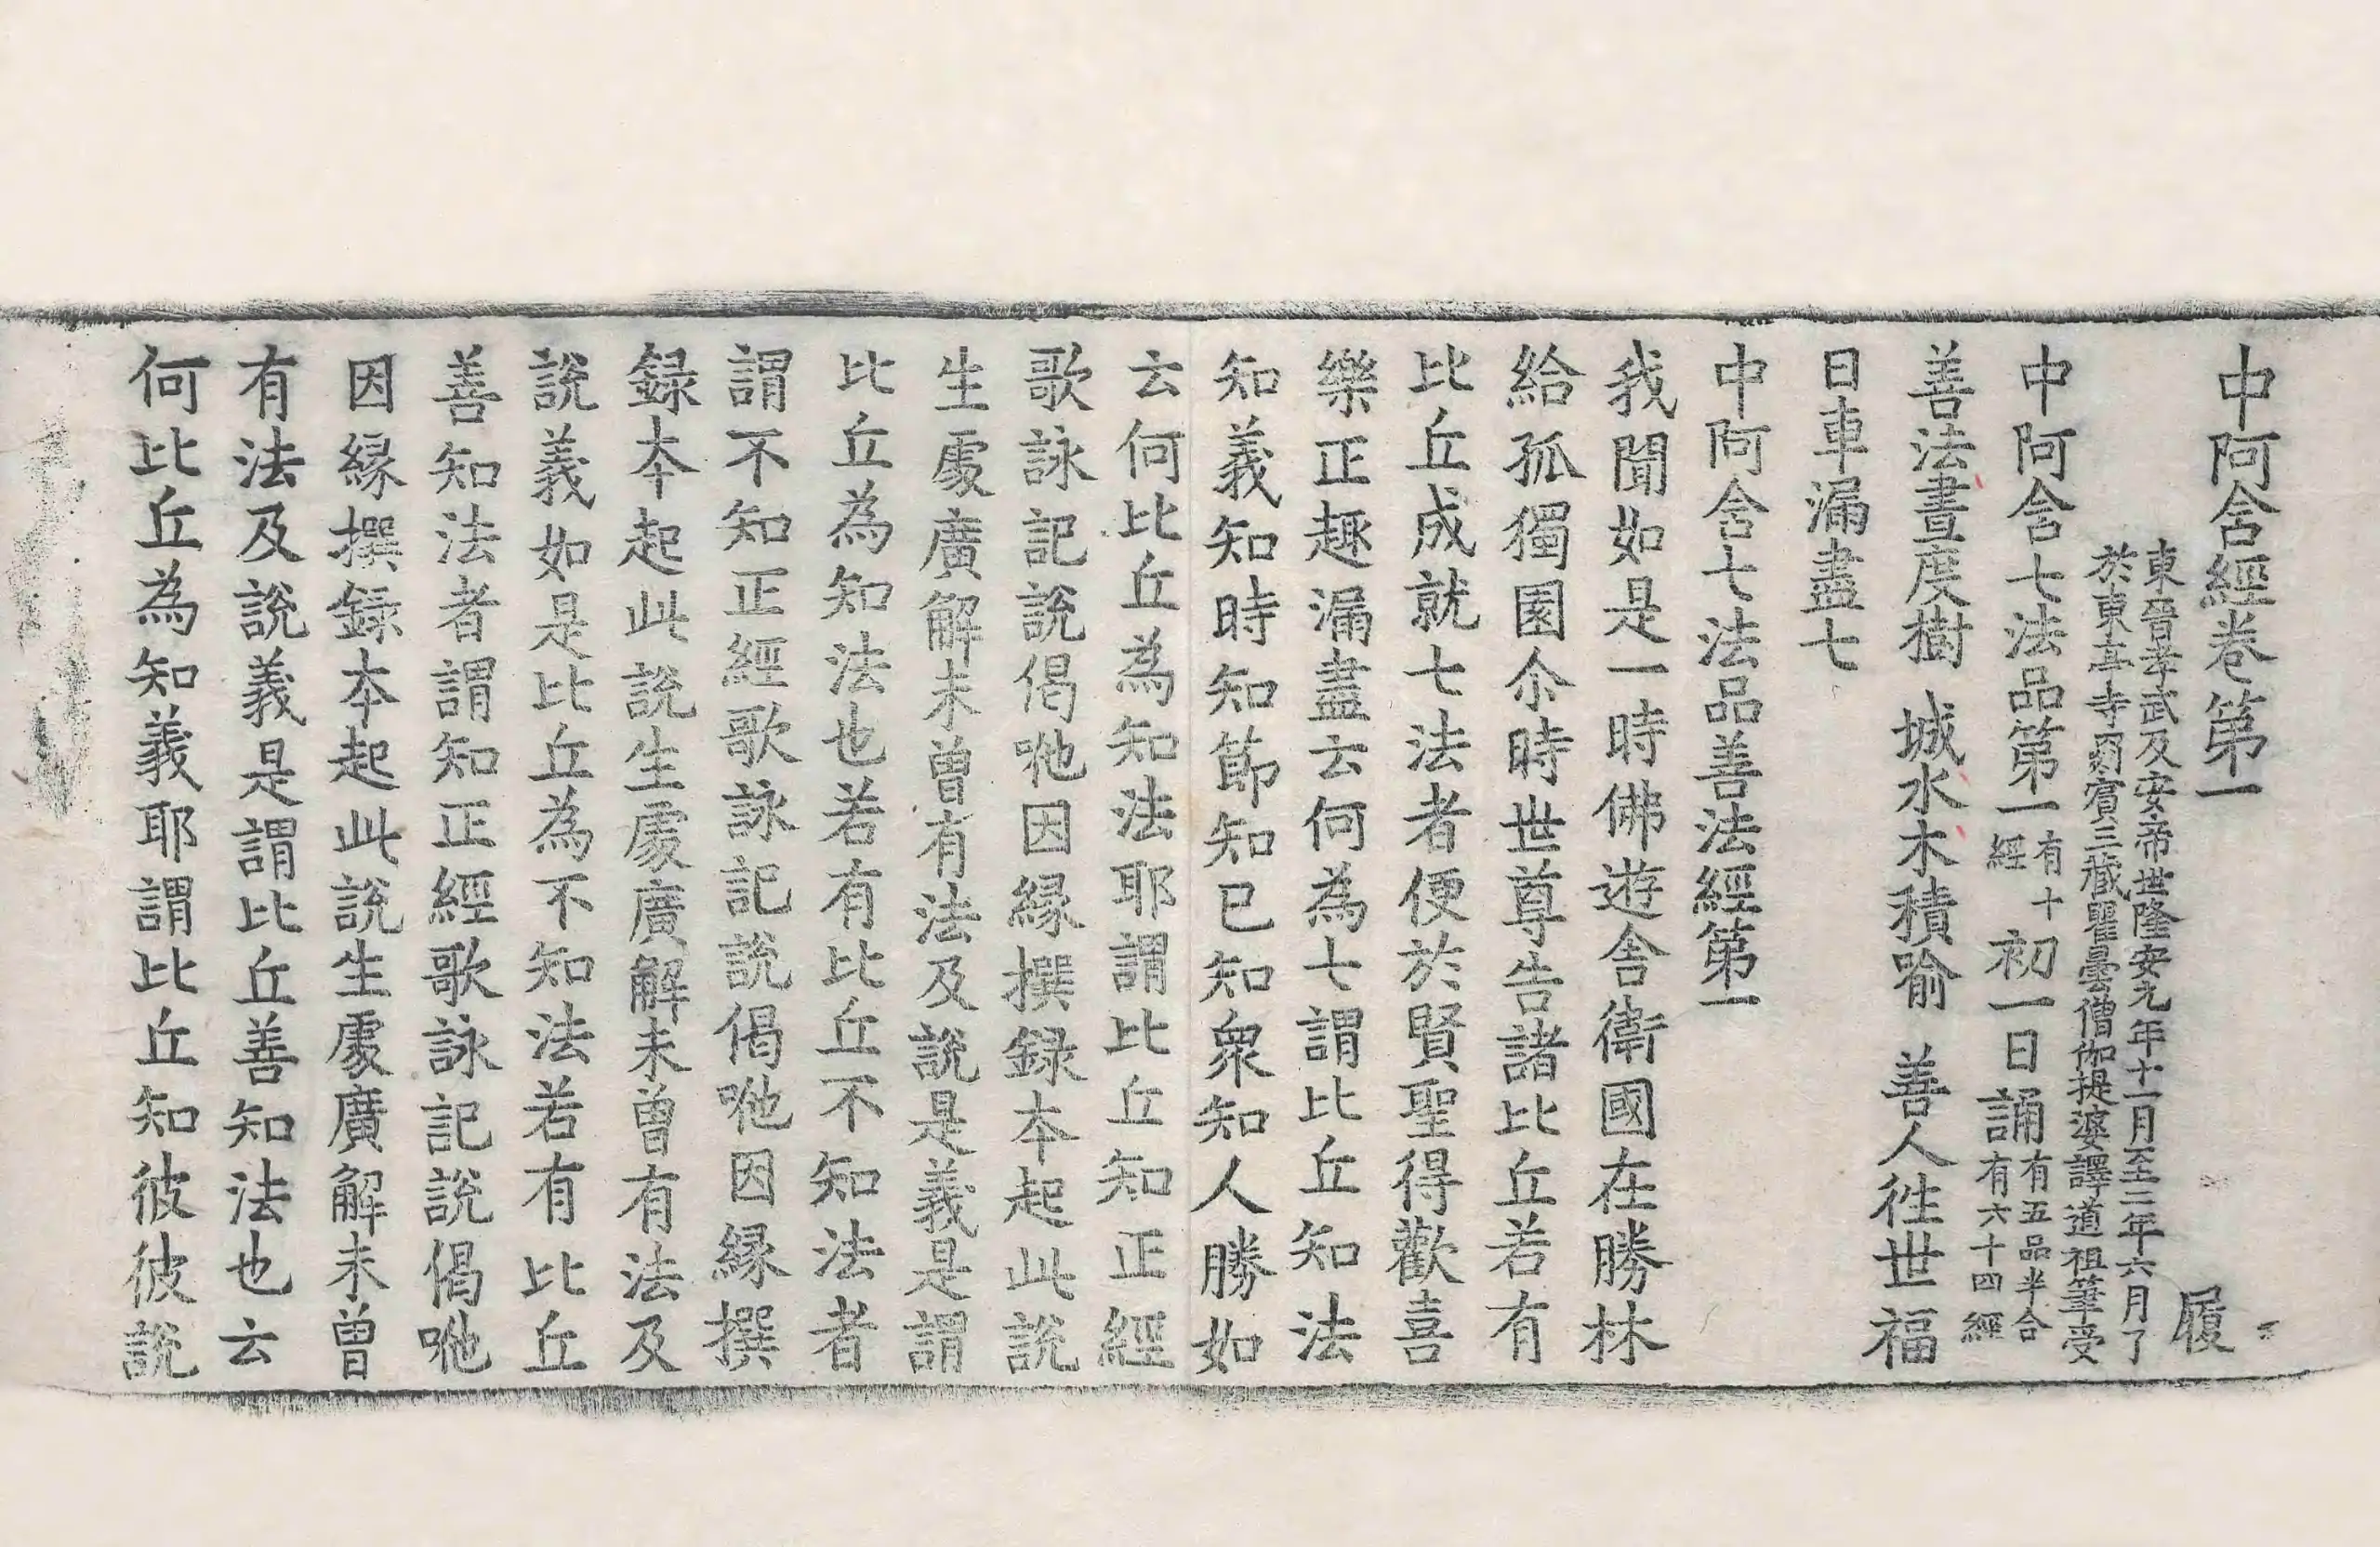 中阿含經卷第一　履
東晉孝武及安帝世隆安元年十一月至二年六月了
於東亭寺罽賓三藏瞿曇僧伽提婆譯道祖筆受
中阿含七法品第一有十經初一日誦有五品半合有六十四經
善法晝度樹　城水木積喻　善人往世福
日車漏盡七
中阿含七法品善法經第一
我聞如是一時佛遊舍衛國在勝林
給孤獨園尒時世尊告諸比丘若有
比丘成就七法者便於賢聖得歡喜
樂正趣漏盡云何為七謂比丘知法
知義知時知節知已知衆知人勝如
云何比丘為知法耶謂比丘知正經
歌詠記說偈咃因緣撰録本起此說
生處廣解未曾有法及說是義是謂
比丘為知法也若有比丘不知法者
謂不知正經歌詠記說偈咃因緣撰
録本起此說生處廣解未曾有法及
說義如是比丘為不知法若有比丘
善知法者謂知正經歌詠記說偈咃
因緣撰録本起此說生處廣解未曾
有法及說義是謂比丘善知法也云
何比丘為知義耶謂比丘知彼彼說